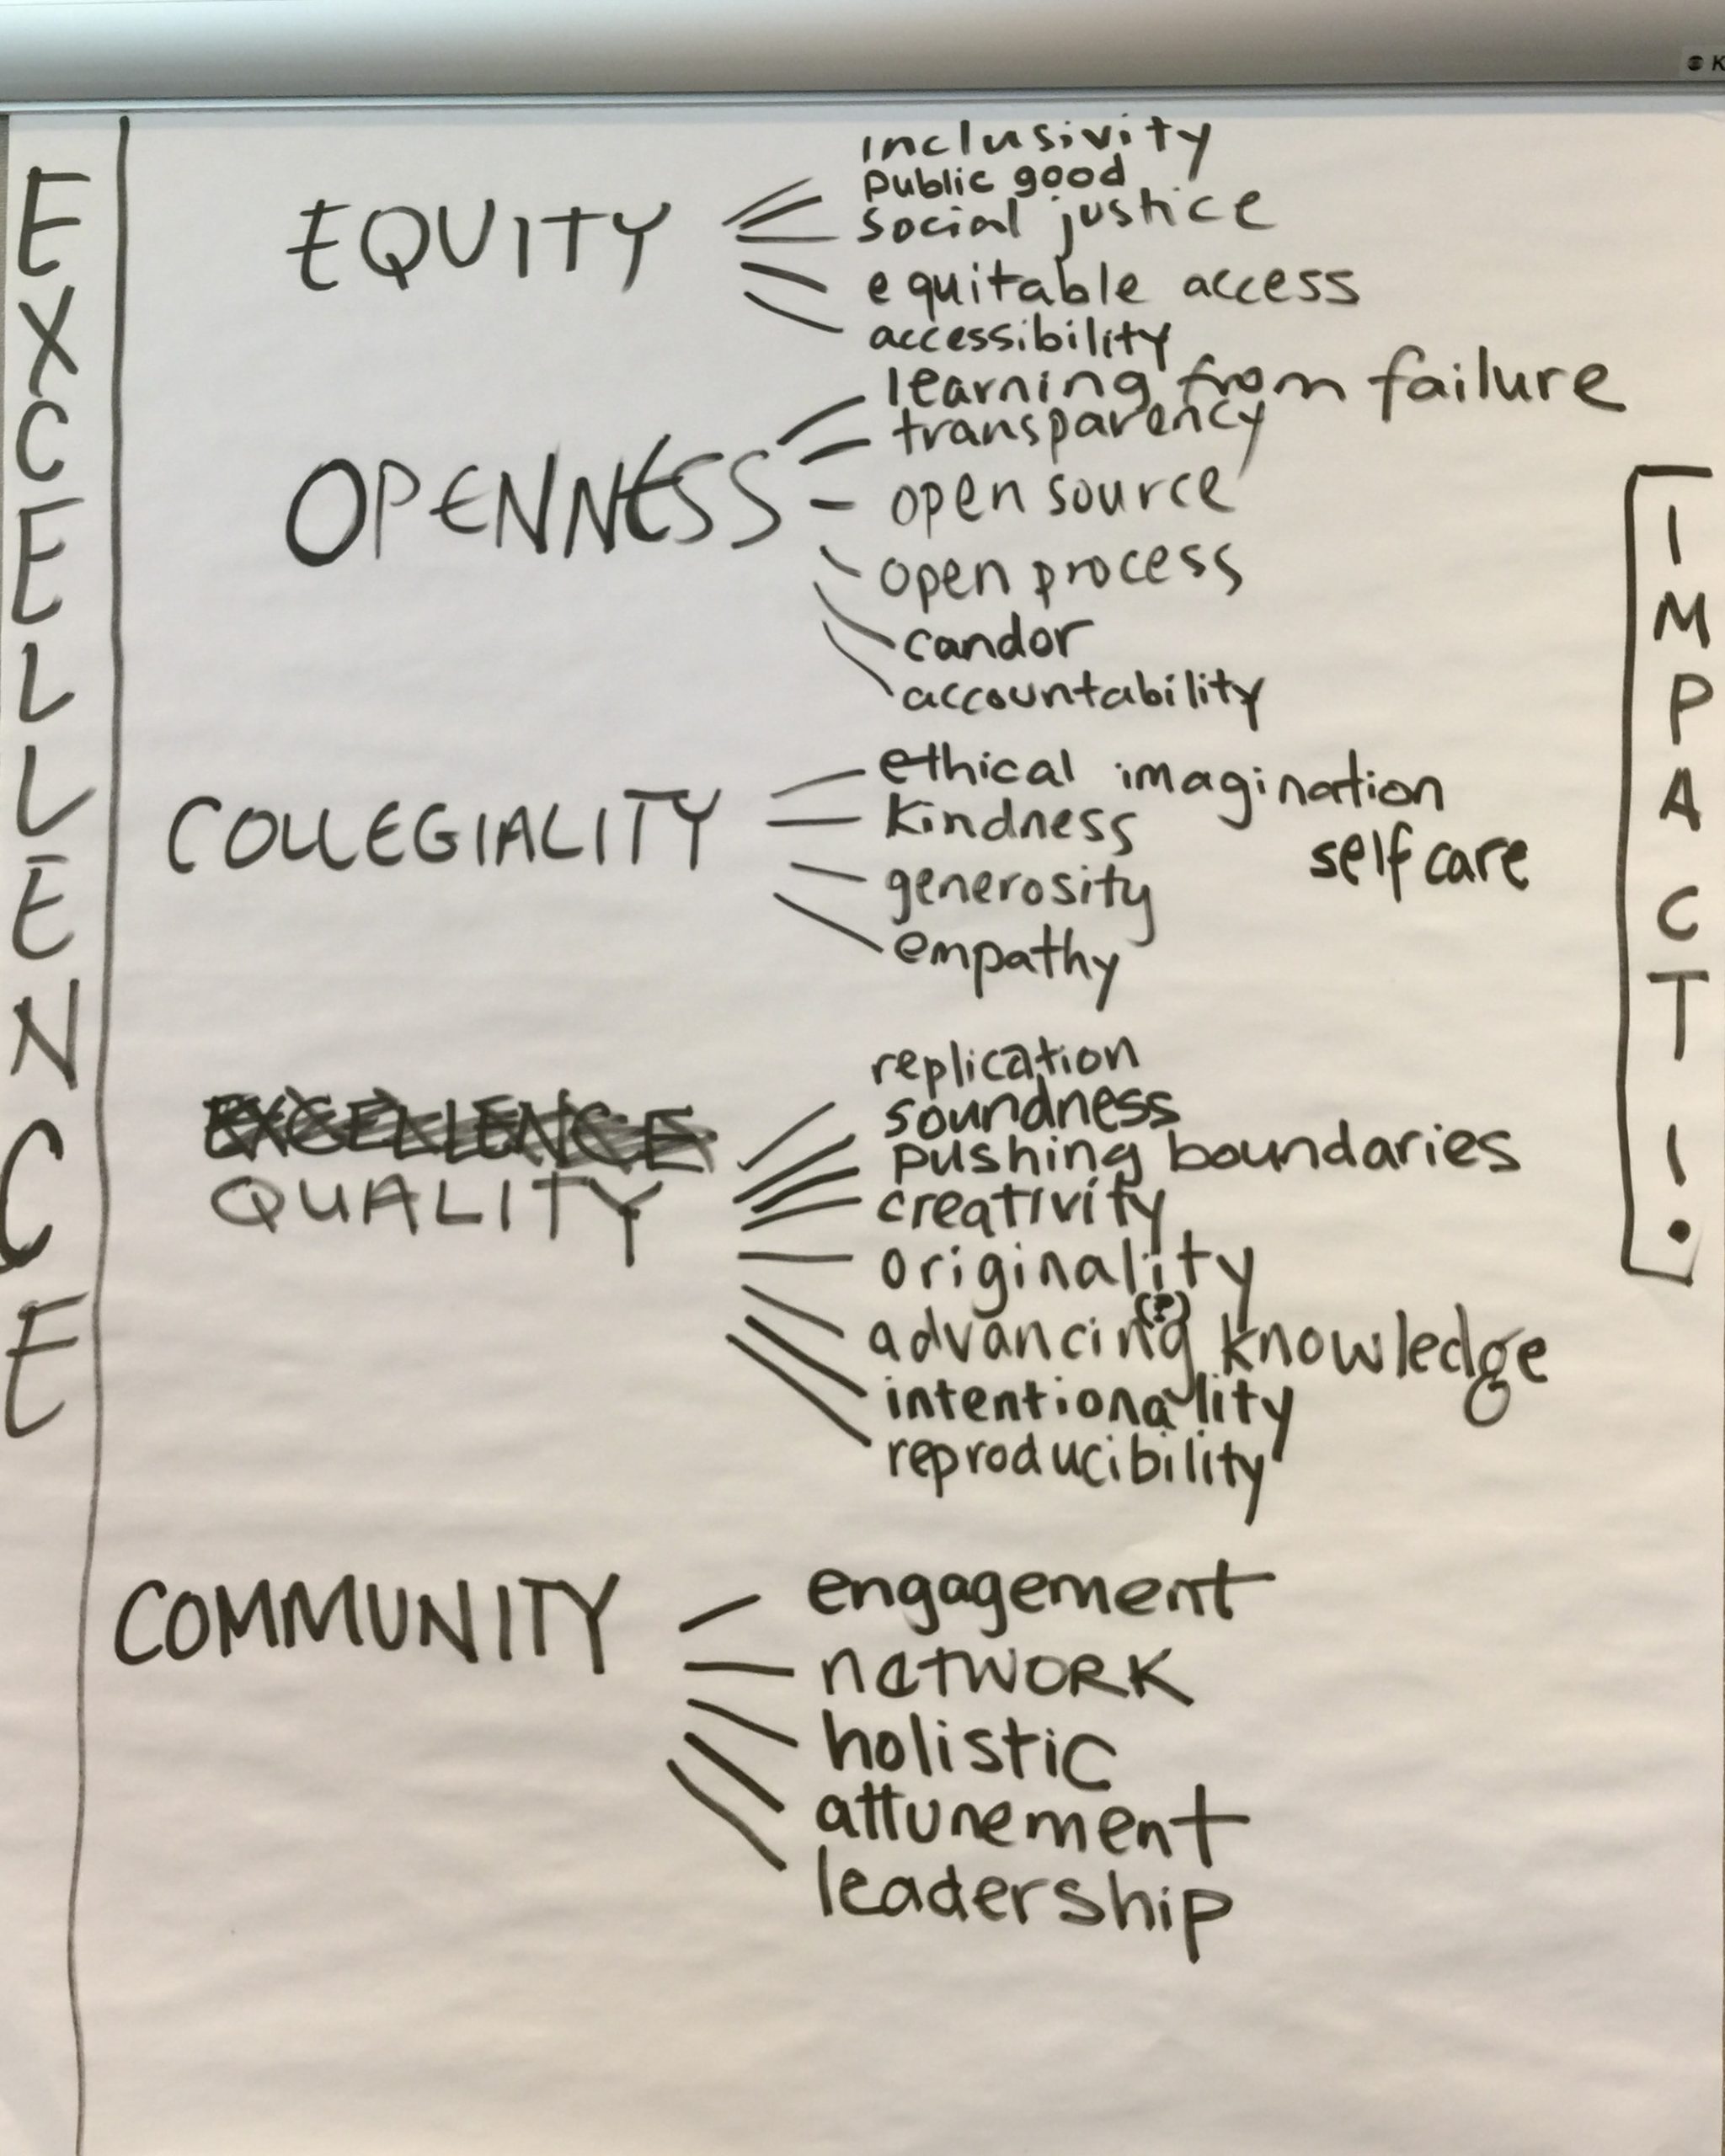 K
EXCELLENCE
EQUITY
inclusivity
public good
social justice
equitable access
accessibility
OPENNESS
learning from failure
transparency
open source
open process
candor
accountability
COLLEGIALITY
ethical imagination
kindness
self care
generosity
empathy
EXCELLENCE
QUALITY
replication
soundness
pushing boundaries
creativity
originality
(?)
advancing knowledge
intentionality
reproducibility
COMMUNITY
engagement
netWORK
holistic
attunement
leadership
IMPACT!